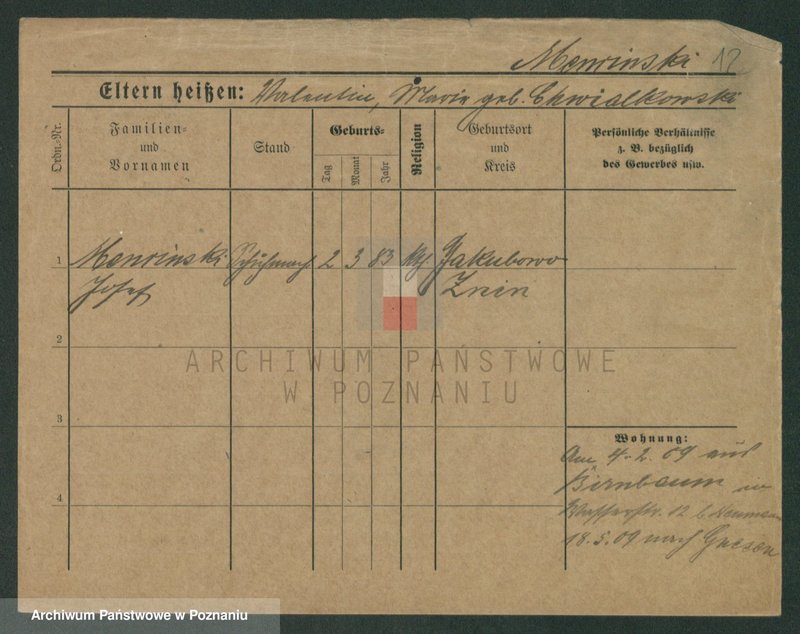 Menrinski 12
Eltern heißen: Valentin, Maria geb. Chwialkowski
Ordn.-Nr.
Familien-
und
Vornamen
Stand
Geburts-
Tag
Monat
Jahr
Religion
Geburtsort
und
Kreis
Persönliche Verhältnisse
z. B. bezüglich
des Gewerbes usw.
1 Menrinski Schuhmach. 2 3 83 kth. Jakubowo
Josef Znin
2
3
4
Wohnung:
Am 4.2.09 aus
Birnbaum
Wasserstr. 12 b. Neumann
18.5.09 nach Gnesen
ARCHIWUM PAŃSTWOWE
W POZNANIU
Archiwum Państwowe w Poznaniu